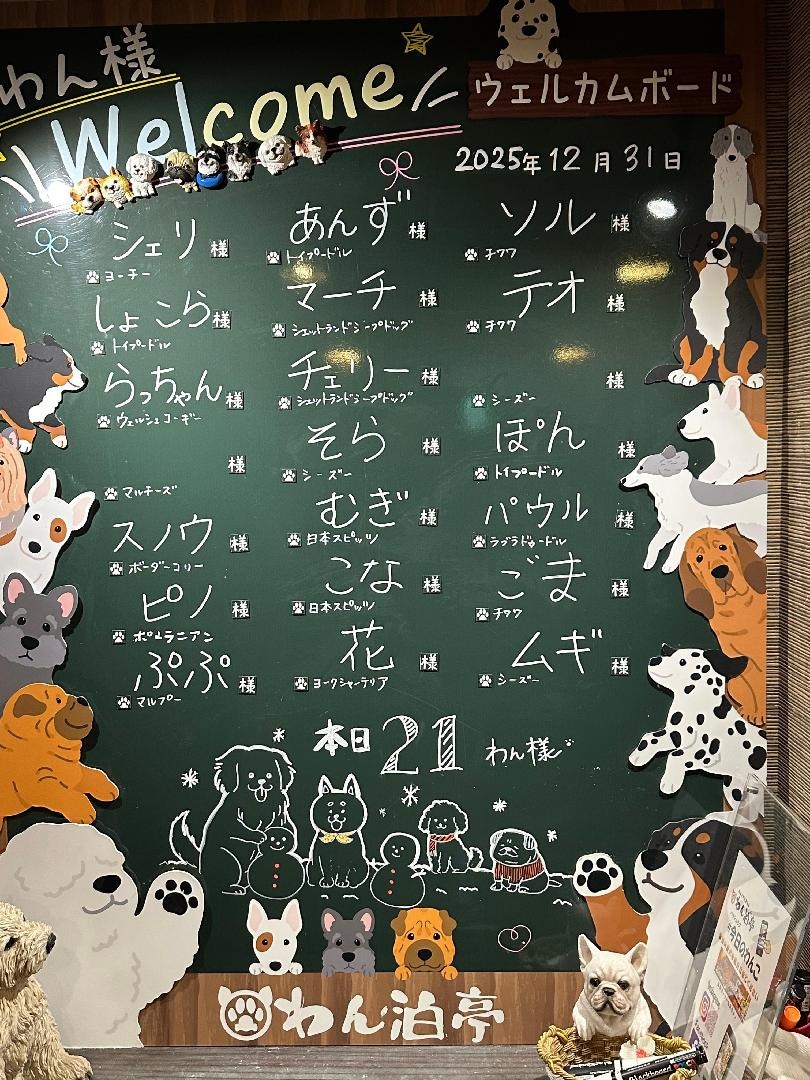 わん様
Welcome
ウェルカムボード
2025年12月31日
シェリ様
ヨーチー
しょこら様
トイプードル
らっちゃん様
ウェルシュコーギー
様
マルチーズ
スノウ様
ボーダーコリー
ピノ様
ポメラニアン
ぷぷ様
マルプー
あんず様
トイプードル
マーチ様
シェットランドシープドッグ
チェリー様
シェットランドシープドッグ
そら様
シーズー
むぎ様
日本スピッツ
こな様
日本スピッツ
花様
ヨークシャーテリア
ソル様
チワワ
テオ様
チワワ
様
シーズー
ぽん様
トイプードル
パウル様
ラブラドゥードル
ごま様
チワワ
ムギ様
シーズー
本日21わん様
わん泊亭
#今日のわんこ
Blackboard